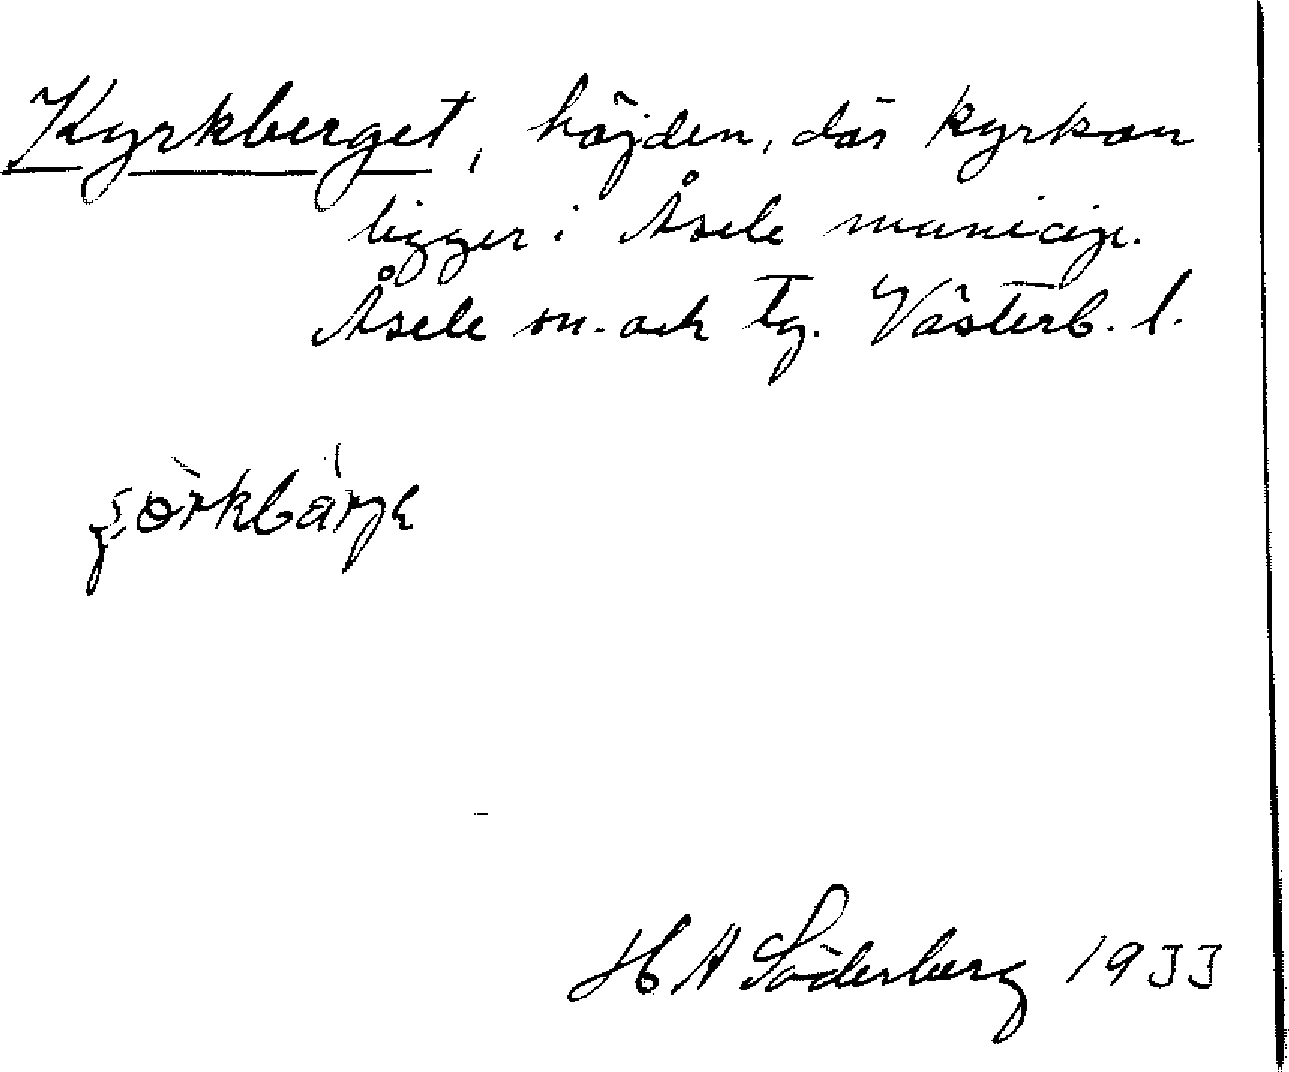 Kyrkberget, höjden, där kyrkan
ligger i Åsele municip.
Åsele sn. och tg. Västerb. l.
H A Söderberg 1933